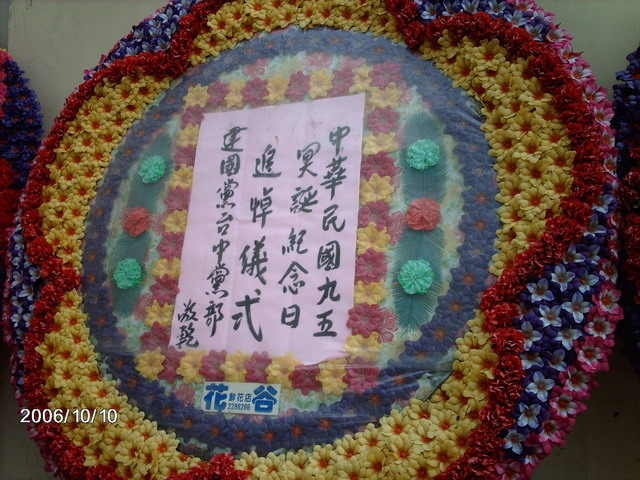 中華民國九五
冥誕紀念日
追悼儀式
建國黨台中黨部
敬輓
花谷
鮮花店
2288286
2006/10/10